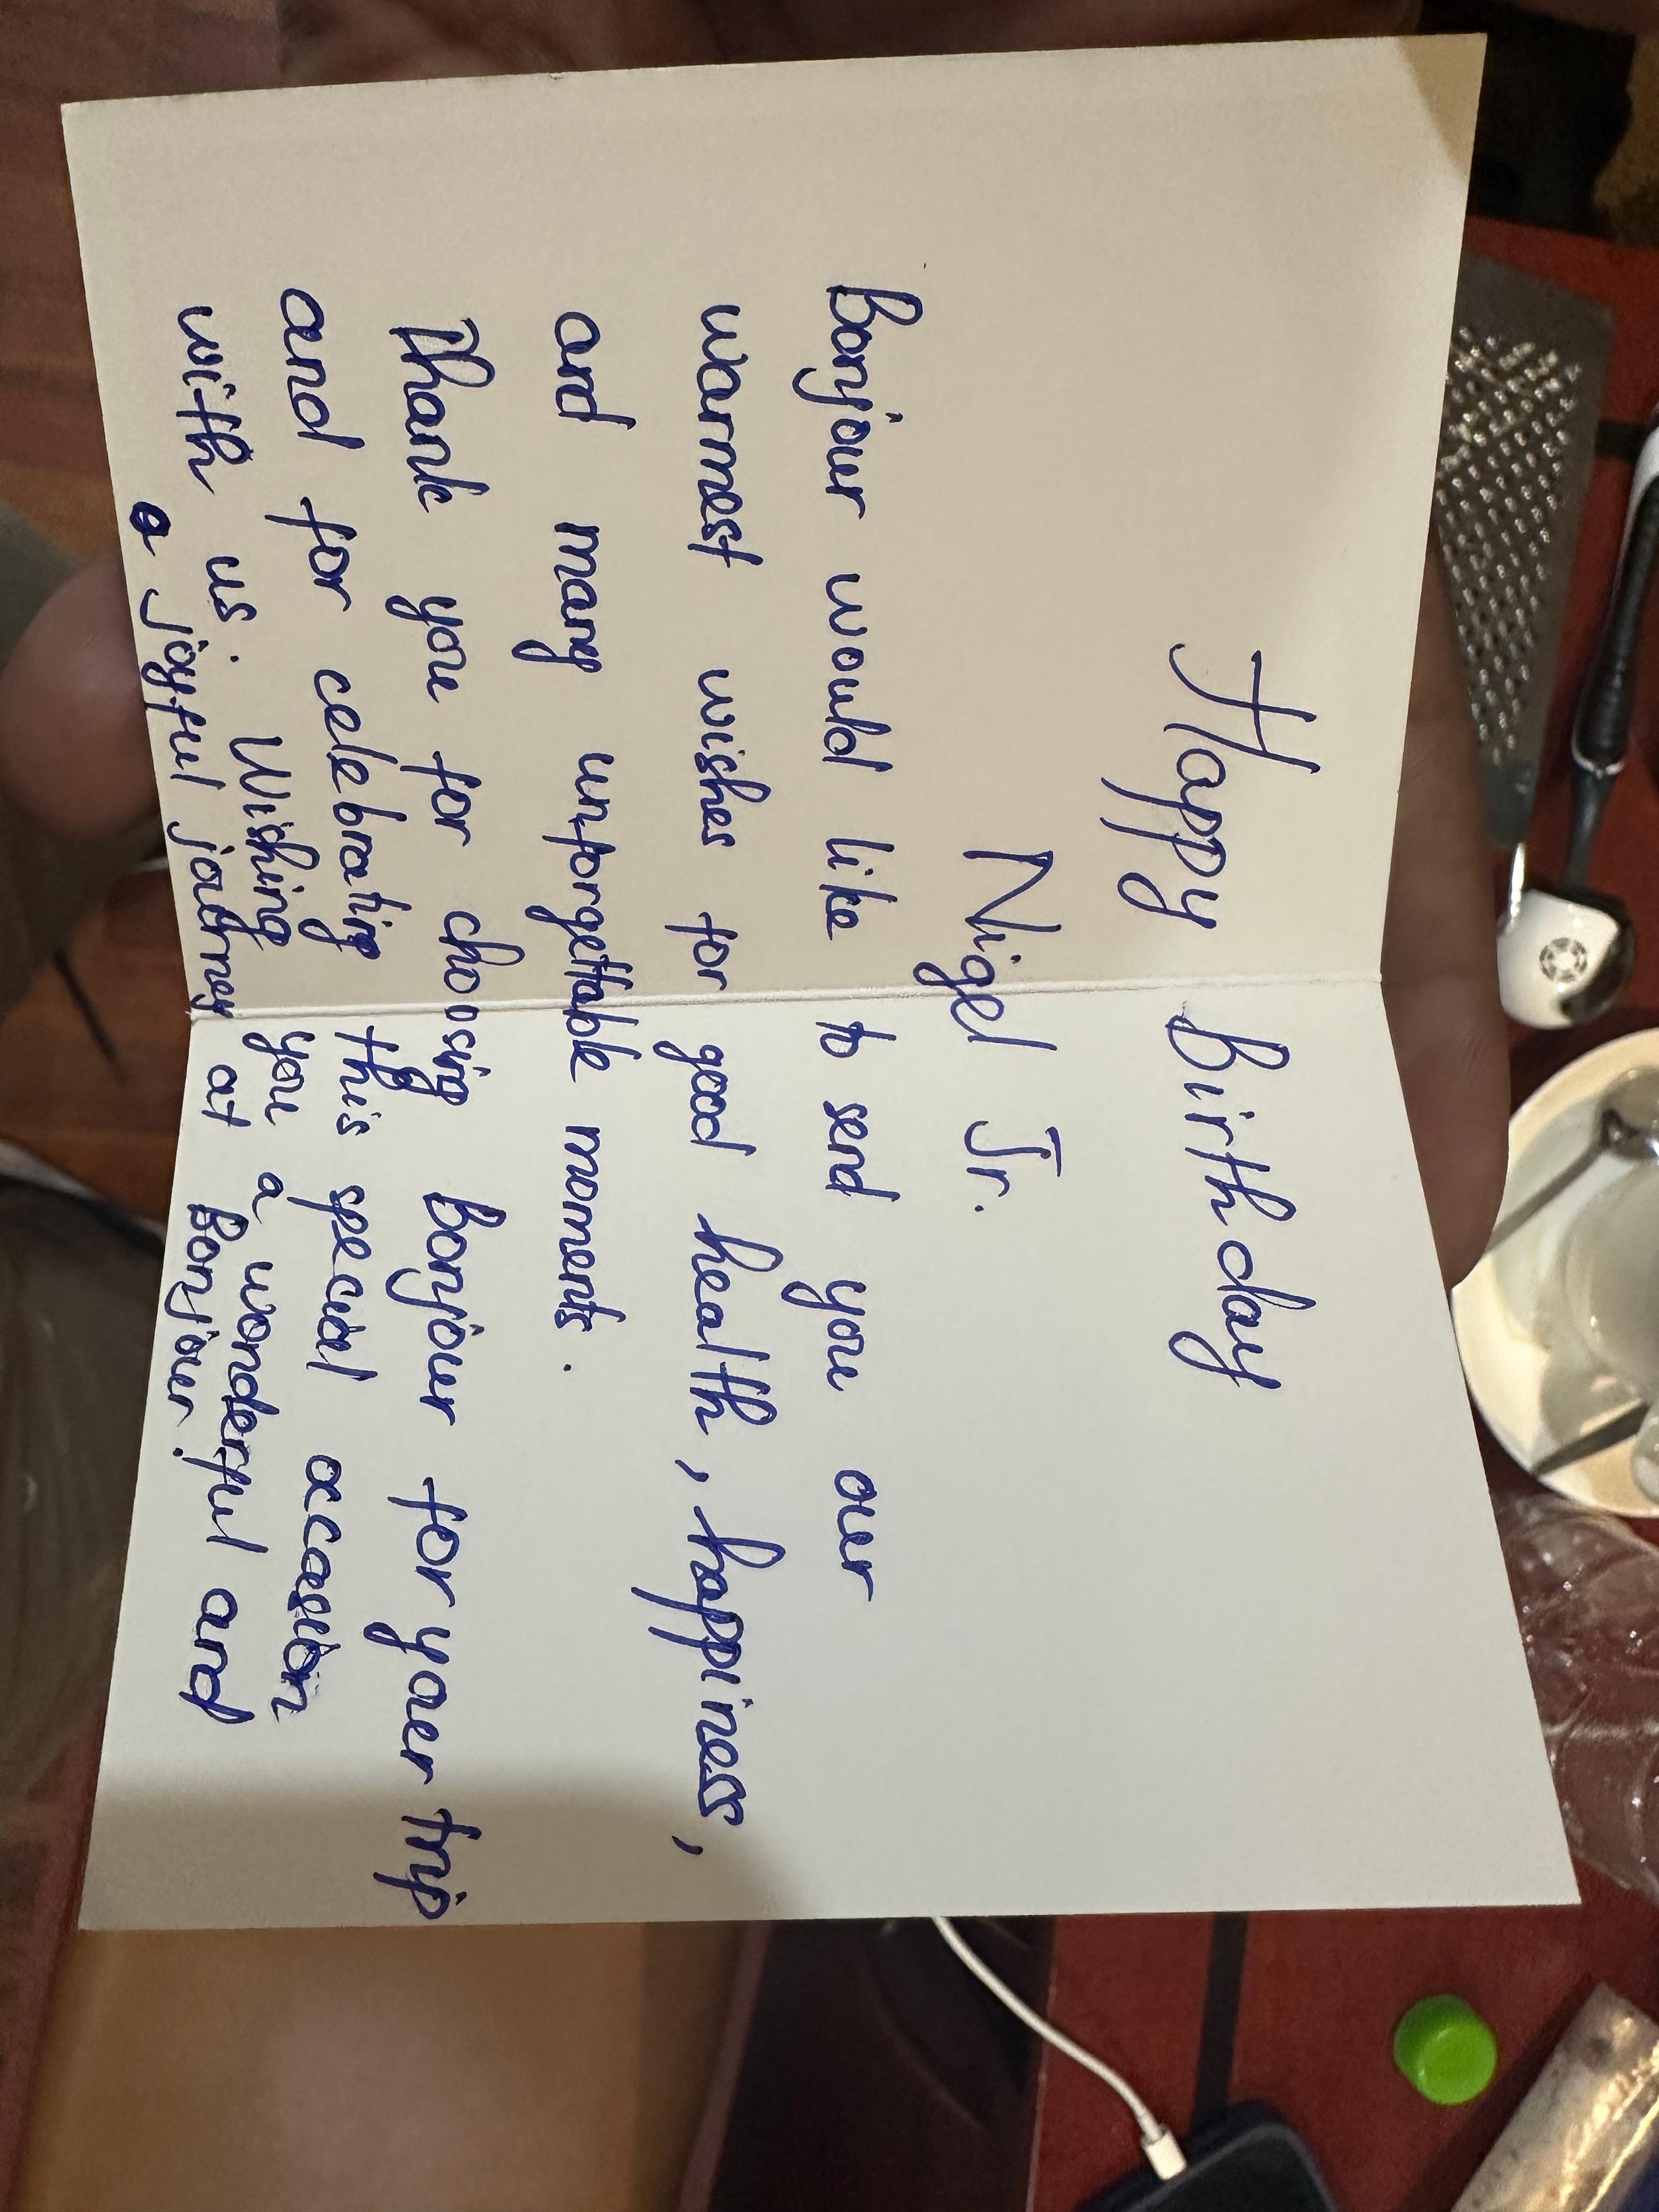 Happy Birthday
Nigel Jr.
Bonjour would like to send you our
warmest wishes for good health, happiness,
and many unforgettable moments.
Thank you for choosing Bonjour for your trip
and for celebrating this special occasion
with us. Wishing you a wonderful and
a joyful journey at Bonjour.